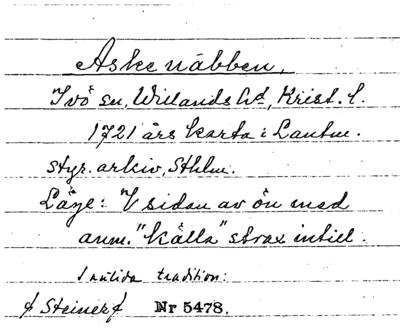 Askenäbben.
Ivö sn, Willands hd, Krist. l.
1721 års karta i Lantm.
styr. arkiv, Sthlm.
Läge: V sidan av ön med
anm. "Källa" strax intill.
nutida tradition:
Steiner Nr 5478.